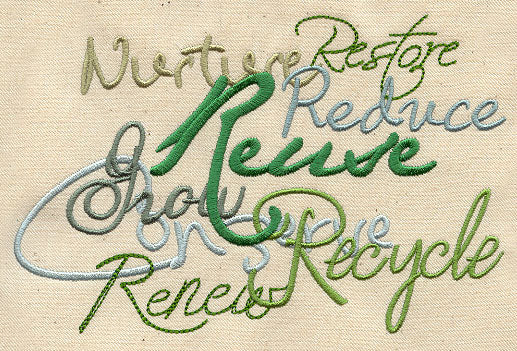 Nurture Restore
Reduce
Reuse
Grow
Conserve
Recycle
Renew